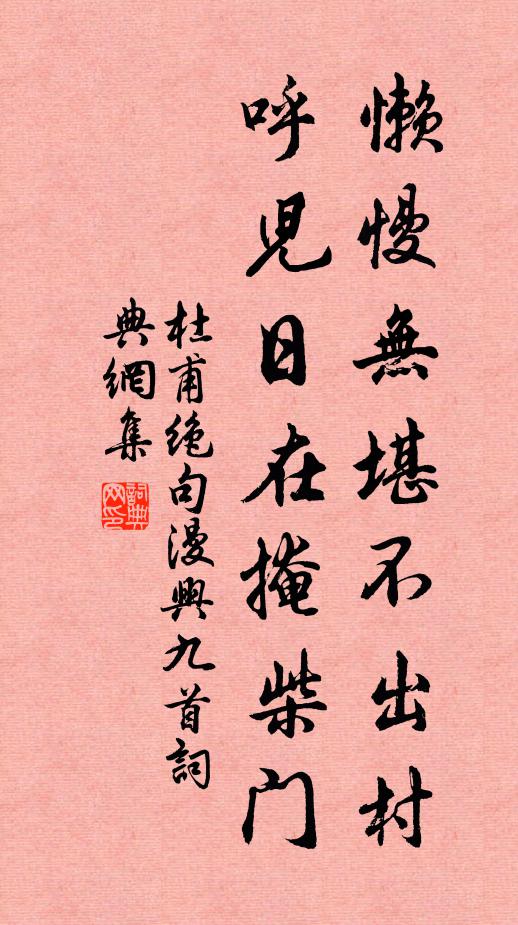 懶慢無堪不出村
呼兒日在掩柴門
杜甫絕句漫興九首詞
典網集
詞典
网印